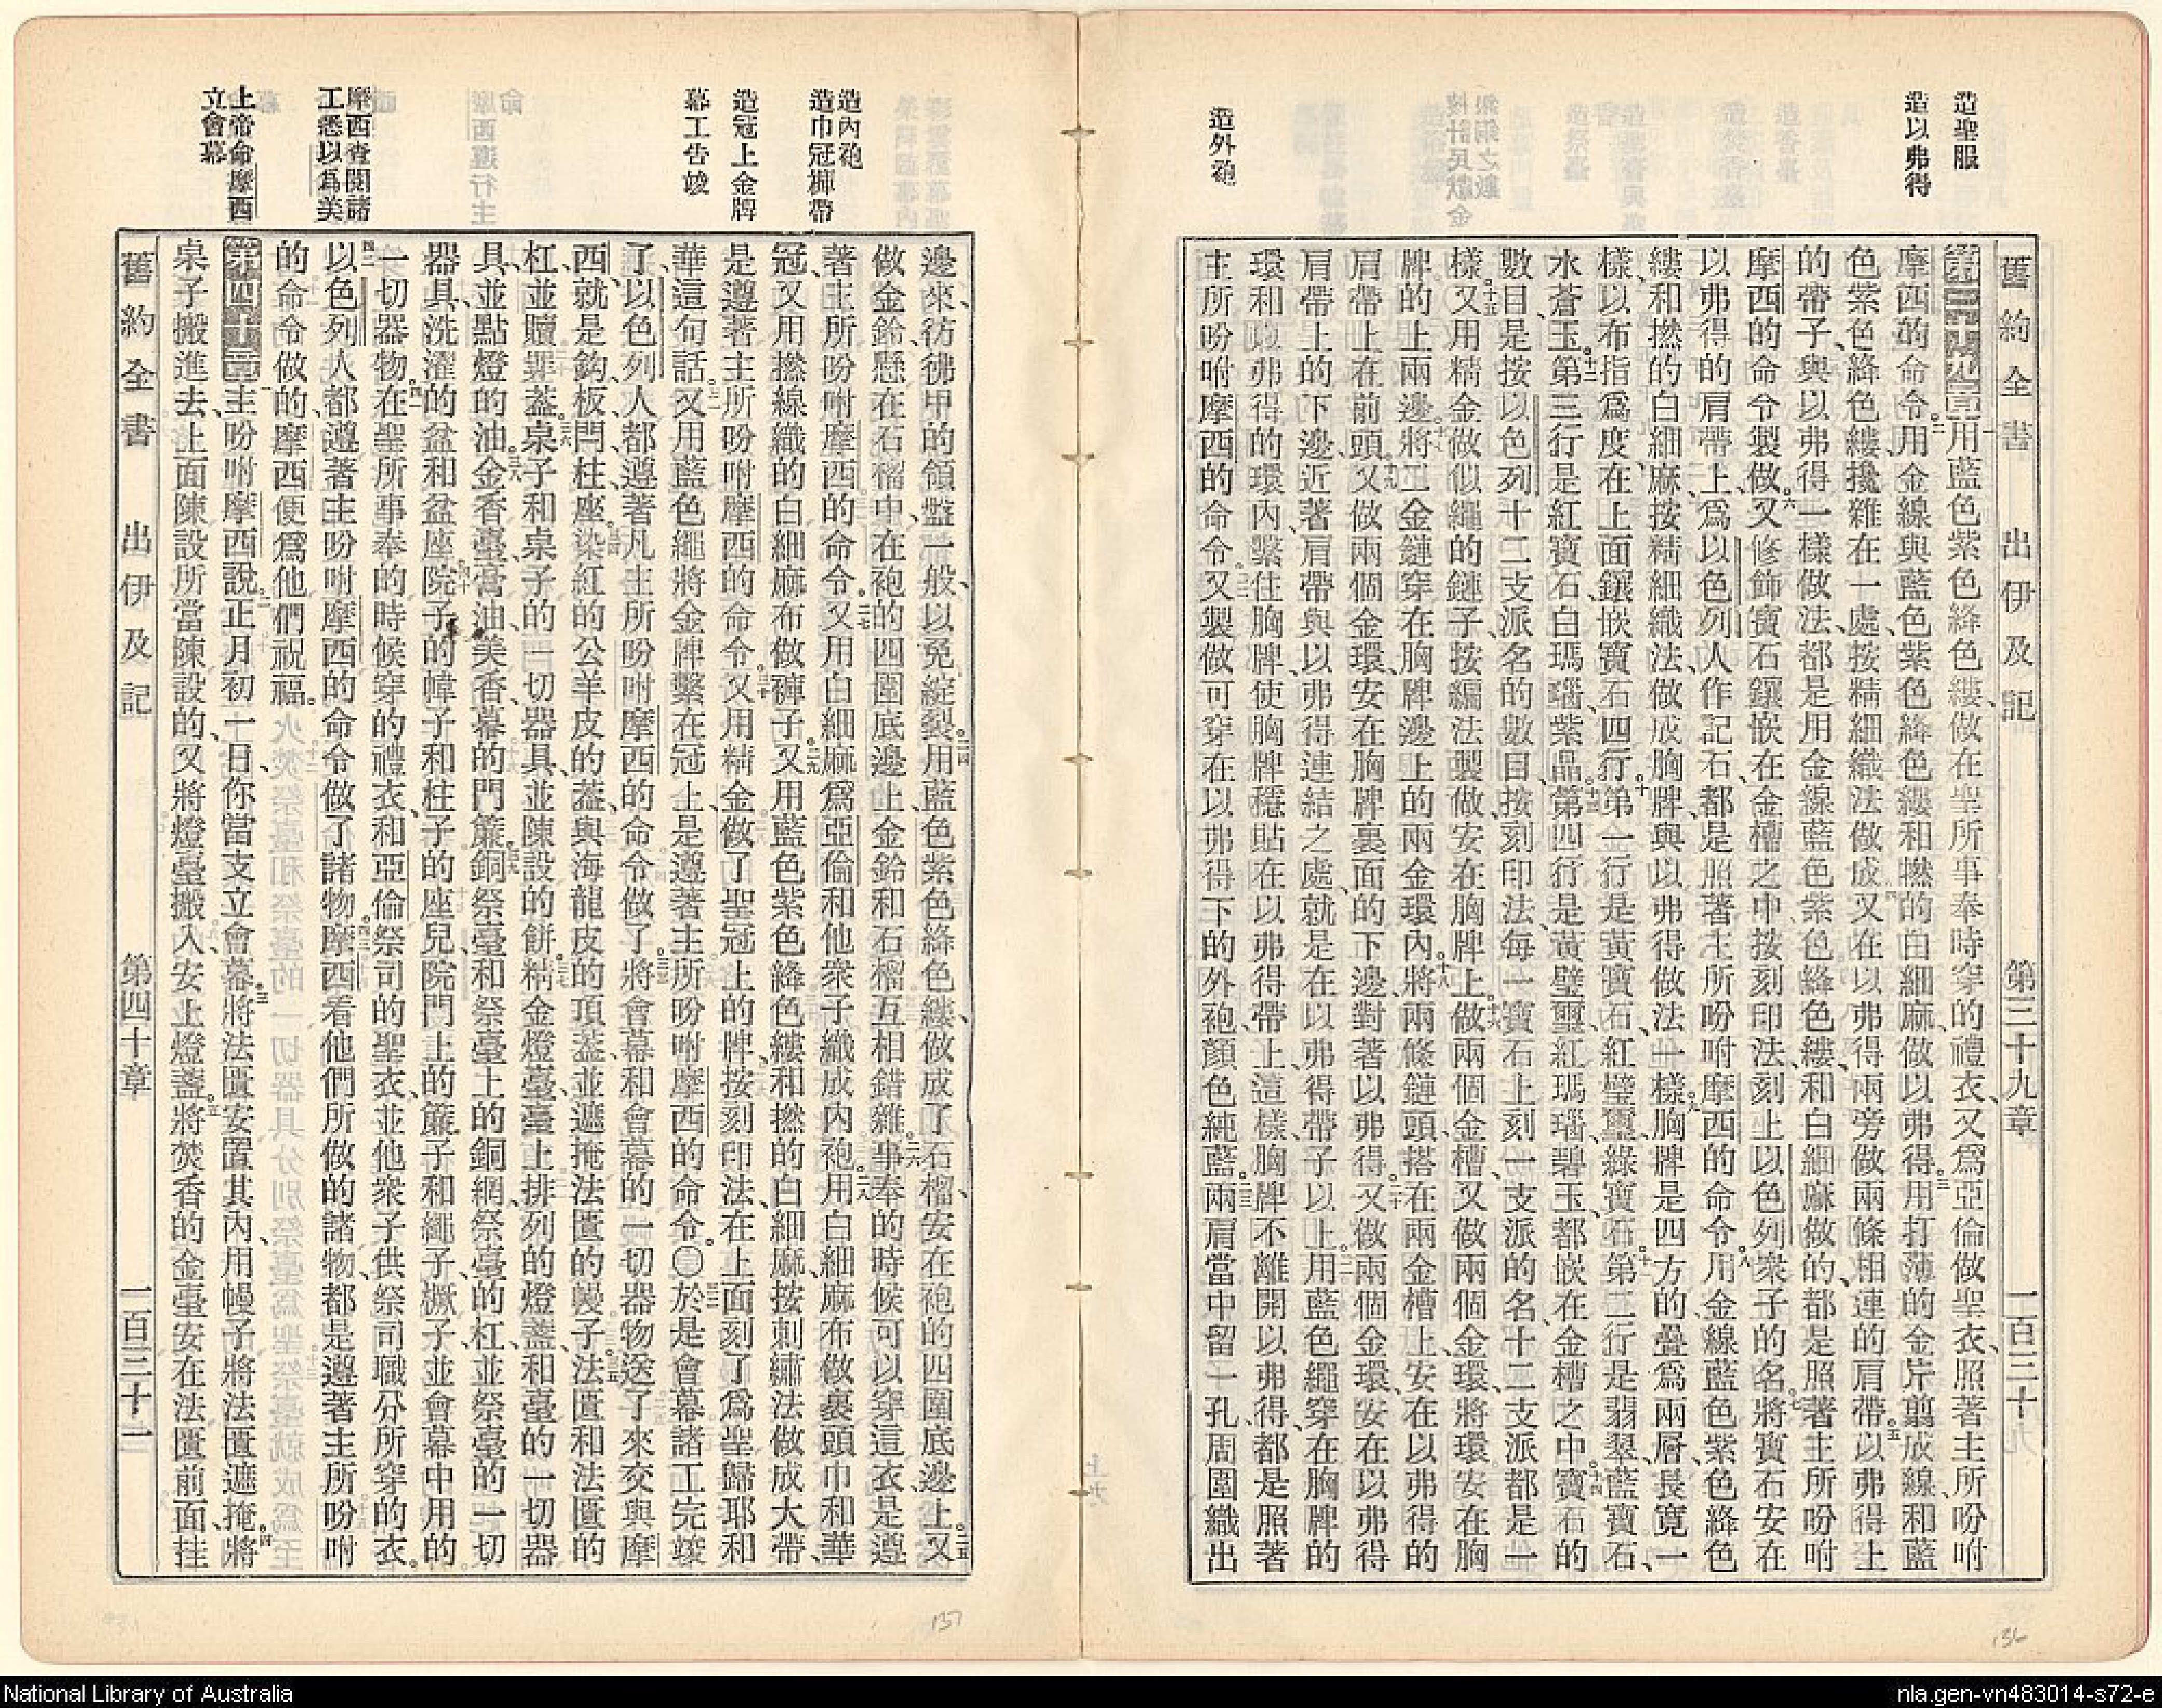 造聖服
造以弗得
造外袍
舊約全書 出伊及記 第三十九章 一百三十
第三十九章 一用藍色紫色絳色縷、做在聖所事奉時穿的禮衣、又爲亞倫做聖衣、照著主所吩咐
摩西的命令。二用金線與藍色紫色絳色縷和撚的白細麻、做以弗得。三用打薄的金片剪成線、和藍
色紫色絳色縷攙雜在一處、按精細織法做成。四又在以弗得兩旁做兩條相連的肩帶。五以弗得上
的帶子、與以弗得一樣做法、都是用金線藍色紫色絳色縷、和白細麻做的、都是照著主所吩咐
摩西的命令製做。六又修飾寶石、鑲嵌在金槽之中、按刻印法、刻上以色列衆子的名。七將寶石安在
以弗得的肩帶上、爲以色列人作記石、都是照著主所吩咐摩西的命令。八用金線藍色紫色絳色
縷和撚的白細麻、按精細織法、做成胸牌、與以弗得做法一樣。九胸牌是四方的、疊爲兩層、長寬一
樣、以布指爲度。在上面鑲嵌寶石四行。十第一行是黃寶石、紅璧璽、綠寶石。十一第二行是翡翠、藍寶石、
水蒼玉。十二第三行是紅寶石、白瑪瑙、紫晶。十三第四行是黃璧璽、紅瑪瑙、碧玉、都嵌在金槽之中。十四寶石的
數目、是按以色列十二支派名的數目、按刻印法、每一寶石上刻一支派的名、十二支派都是一
樣。十五又用精金做似繩的鏈子、按編法製做、安在胸牌上。十六做兩個金槽、又做兩個金環、將環安在胸
牌的上兩邊。十七將二金鏈穿在胸牌邊上的兩金環內。十八將兩條鏈頭、搭在兩金槽上、安在以弗得的
肩帶上在前頭。十九又做兩個金環、安在胸牌裏面的下邊、對著以弗得。二十又做兩個金環、安在以弗得
肩帶上的下邊、近著肩帶與以弗得連結之處、就是在以弗得帶子以上。二一用藍色繩穿在胸牌的
環和以弗得的環內、繫住胸牌、使胸牌穩貼在以弗得帶上、這樣、胸牌不離開以弗得、都是照著
主所吩咐摩西的命令。二二又製做可穿在以弗得下的外袍、顏色純藍。二三兩肩當中留一孔、周圍織出
造內袍
造巾冠褲帶
造冠上金牌
幕工告竣
摩西查閱諸
工悉以爲美
上帝命摩西
立會幕
邊來、彷彿甲的領盤一般、以免綻裂。二四用藍色紫色絳色縷、做成了石榴、安在袍的四圍底邊上。二五又
做金鈴、懸在石榴中、在袍的四圍底邊上、金鈴和石榴互相錯雜。二六事奉的時候可以穿這衣、是遵
著主所吩咐摩西的命令。二七又用白細麻爲亞倫和他衆子織成內袍。二八用白細麻布做裹頭巾和華
冠、又用撚線織的白細麻布做褲子。二九又用藍色紫色絳色縷和撚的白細麻、按刺繡法做成大帶、
是遵著主所吩咐摩西的命令。三十又用精金做了聖冠上的牌、按刻印法、在上面刻了爲聖歸耶和
華這句話。三一又用藍色繩將金牌繫在冠上、是遵著主所吩咐摩西的命令。〇三二於是會幕諸工完竣
了、以色列人都遵著凡主所吩咐摩西的命令做了。三三將會幕和會幕的一切器物送了來交與摩
西、就是鈎、板、閂、柱、座、三四染紅的公羊皮的蓋、與海龍皮的頂蓋、並遮掩法匱的幔子、三五法匱和法匱的
杠、並贖罪蓋、三六桌子和桌子的一切器具、並陳設的餅、三七精金燈臺、臺上排列的燈盞、和臺的一切器
具、並點燈的油、三八金香臺、膏油、美香、幕的門簾、三九銅祭臺和祭臺上的銅網、祭臺的杠、並祭臺的一切
器具、洗濯的盆和盆座、四十院子的幃子和柱子的座兒、院門上的簾子和繩子、橛子、並會幕中用的
一切器物。四一在聖所事奉的時候穿的禮衣、和亞倫祭司的聖衣、並他衆子供祭司職分所穿的衣。
四二以色列人都遵著主吩咐摩西的命令做了諸物。四三摩西看他們所做的諸物、都是遵著主所吩咐
的命令做的、摩西便爲他們祝福。
第四十章 一主吩咐摩西說、二正月初一日、你當支立會幕。三將法匱安置其內、用幔子將法匱遮掩。四將
桌子搬進去、上面陳設所當陳設的、又將燈臺搬入、安上燈盞。五將焚香的金臺安在法匱前面、挂
舊約全書 出伊及記 第四十章 一百三十一
137
136
National Library of Australia
nla.gen-vn483014-s72-e